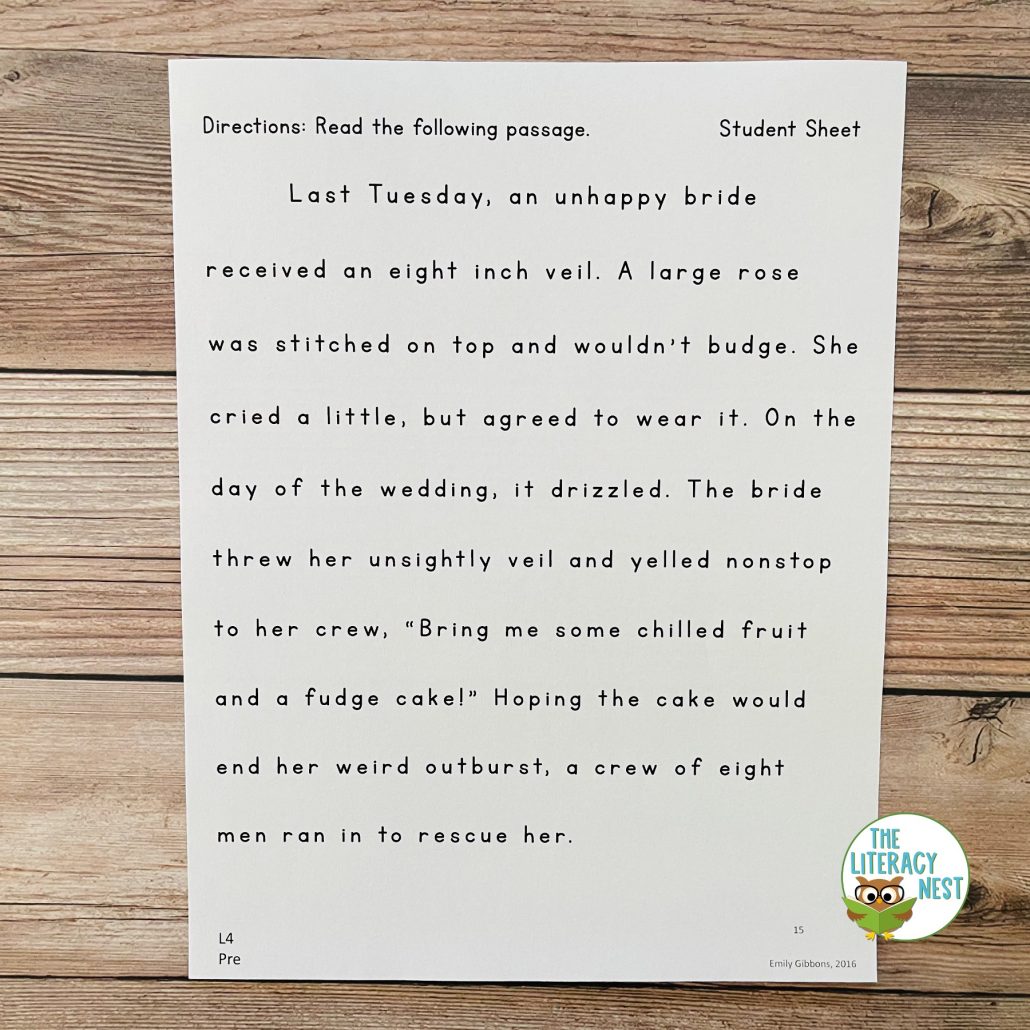 Directions: Read the following passage. Student Sheet
Last Tuesday, an unhappy bride
received an eight inch veil. A large rose
was stitched on top and wouldn't budge. She
cried a little, but agreed to wear it. On the
day of the wedding, it drizzled. The bride
threw her unsightly veil and yelled nonstop
to her crew, “Bring me some chilled fruit
and a fudge cake!” Hoping the cake would
end her weird outburst, a crew of eight
men ran in to rescue her.
THE
LITERACY
NEST
15
L4
Pre
Emily Gibbons, 2016